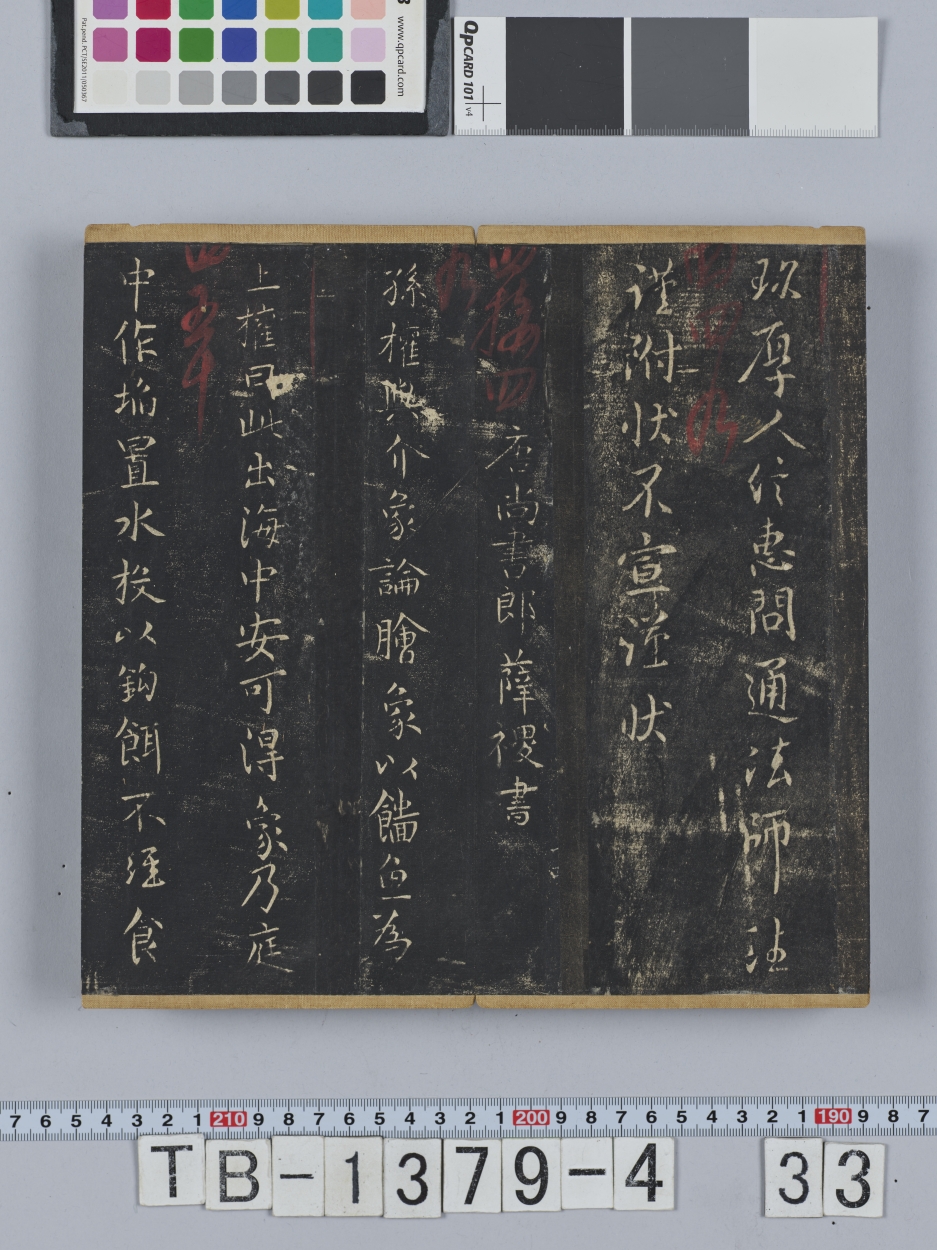 www.qpcard.com
Pat.pend. PCT/SE2011/050367
QPCARD 101 v4
珎厚人信惠問通法師法
謹附状不宣謹状
唐尚書郎薛稷書
孫權與介象論膾象以魚為
上權曰此出海中安可得象乃庭
中作埳置水投以鈎餌不經食
7 6 5 4 3 2 1 210 9 8 7 6 5 4 3 2 1 200 9 8 7 6 5 4 3 2 1 190 9 8 7
TB-1379-4 33